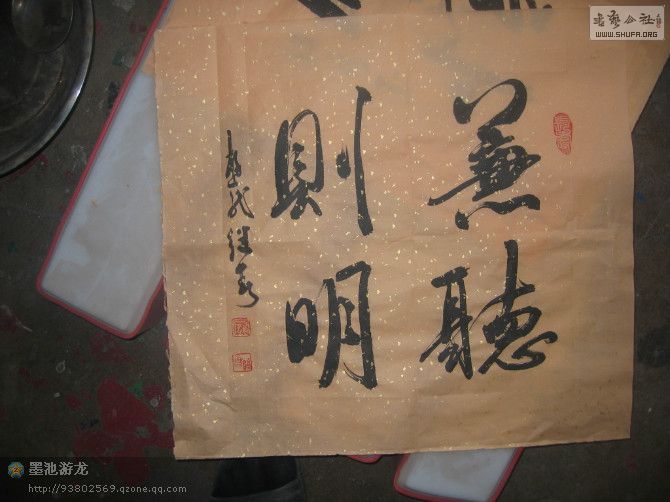 兼聽
則明
书艺公社
WWW.SHUFA.ORG
墨池游龙
http://93802569.qzone.qq.com